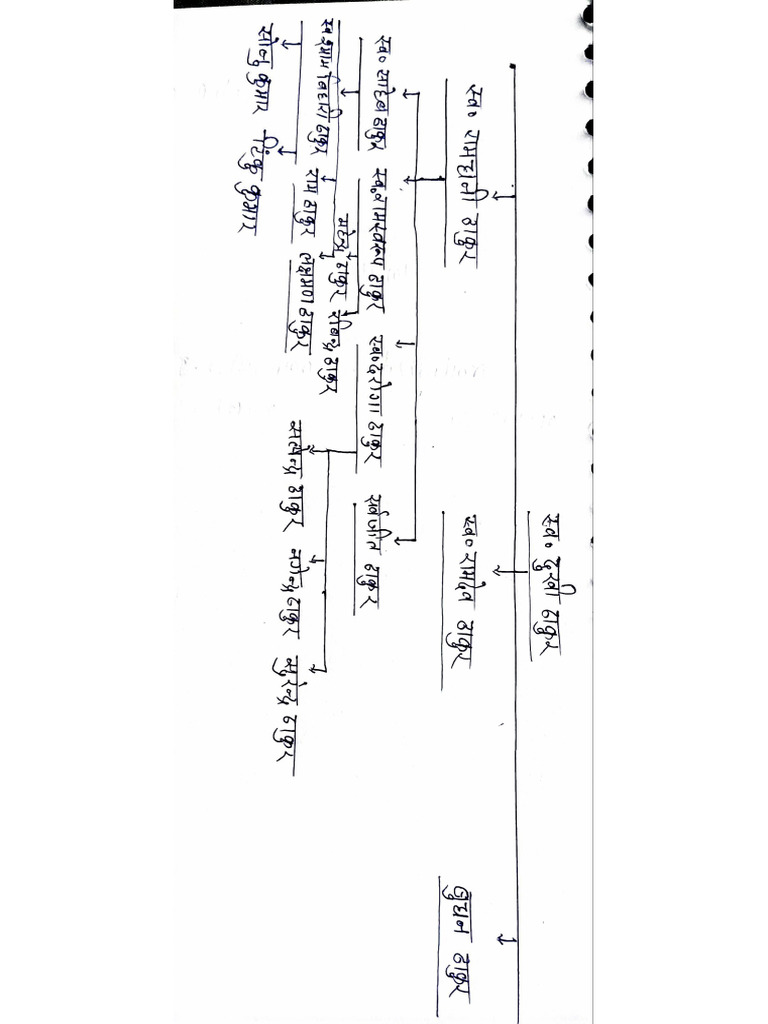 स्व० दुखी ठाकुर
स्व० रामहानी ठाकुर
स्व० रामदेव ठाकुर
बुधन ठाकुर
स्व० साहेब ठाकुर
स्व० रामस्वरूप ठाकुर
स्व० दरोगा ठाकुर
सर्वजीत ठाकुर
स्व० श्याम बिहारी ठाकुर
राम ठाकुर
लक्ष्मण ठाकुर
महेन्द्र ठाकुर
रविन्द्र ठाकुर
सत्येन्द्र ठाकुर
नगेन्द्र ठाकुर
सुरेन्द्र ठाकुर
सोनु कुमार
टिंकु कुमार